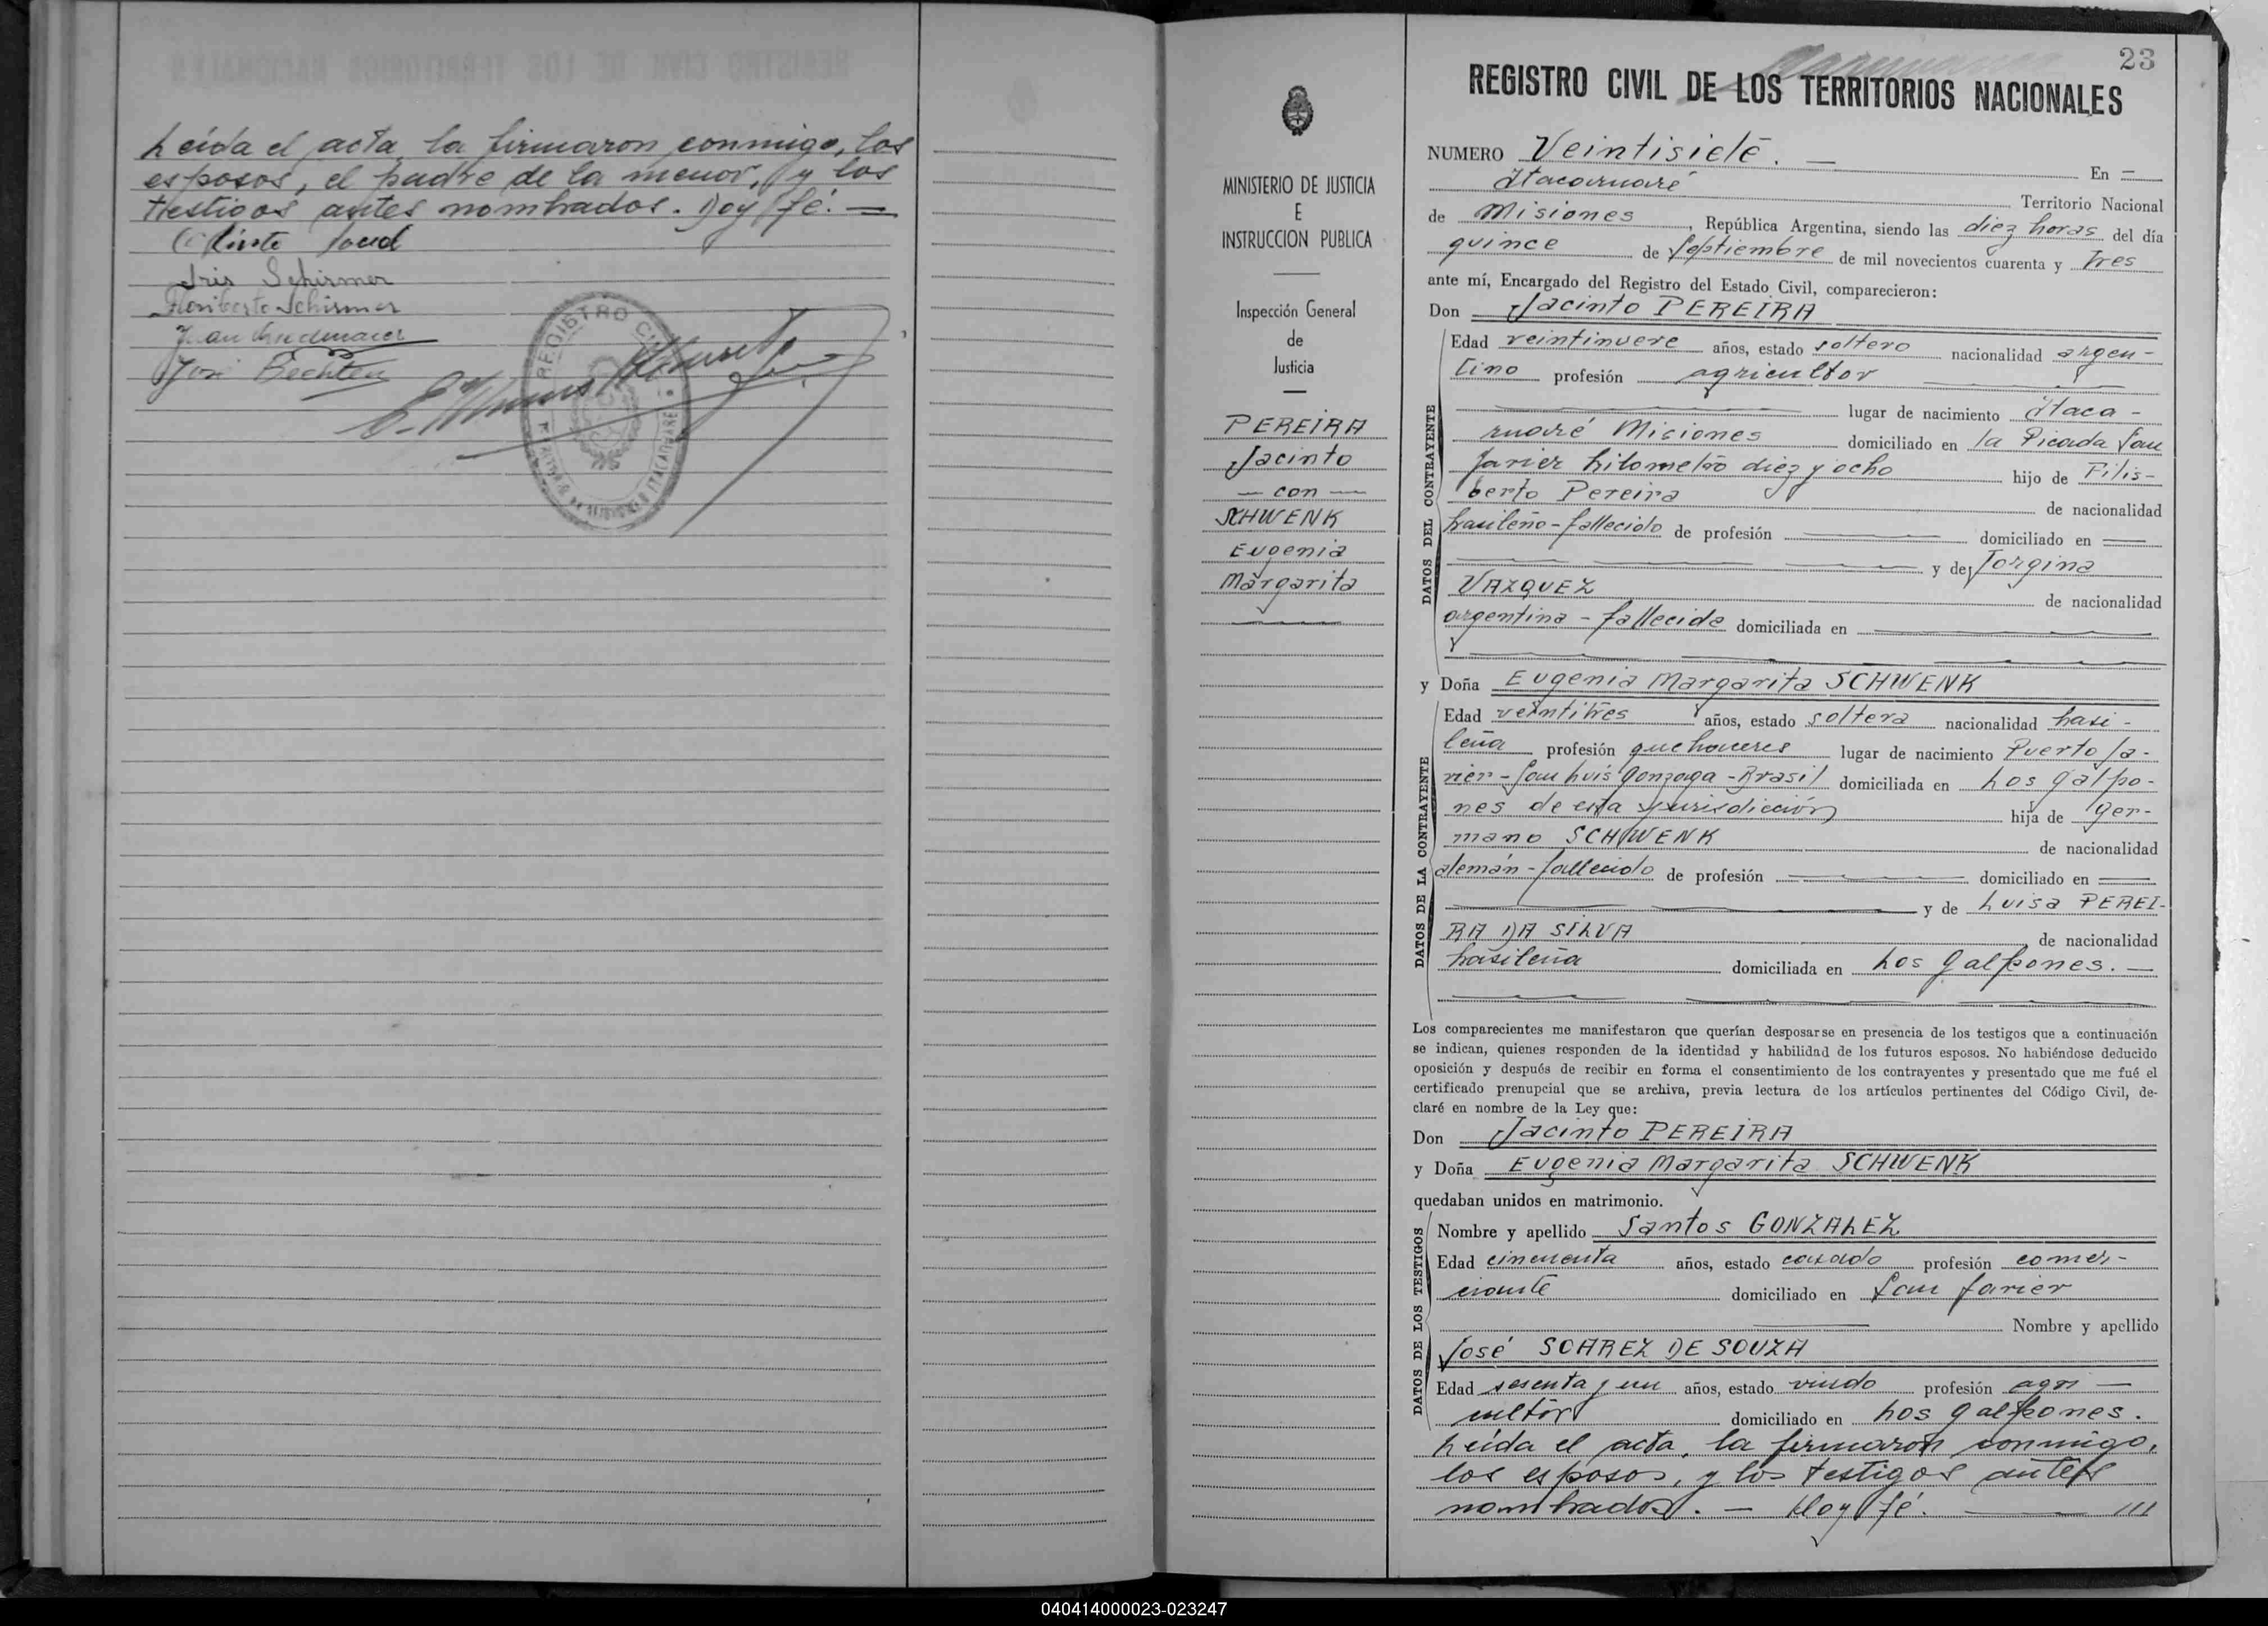 Leída el acta, la firmaron conmigo, los
esposos, el padre de la menor, y los
testigos antes nombrados. Doy fé. —
Iris Schirmer
Heriberto Schirmer
Juan
José Bechten
REGISTRO CIVIL
ITACARUARE
23
REGISTRO CIVIL DE LOS TERRITORIOS NACIONALES
MINISTERIO DE JUSTICIA
E
INSTRUCCION PUBLICA
Inspección General
de
Justicia
PEREIRA
Jacinto
— con —
SCHWENK
Eugenia
Margarita
NUMERO Veintisiete. — En —
Itacaruaré Territorio Nacional
de Misiones, República Argentina, siendo las diez horas del día
quince de Septiembre de mil novecientos cuarenta y tres
ante mí, Encargado del Registro del Estado Civil, comparecieron:
Don Jacinto PEREIRA
DATOS DEL CONTRAYENTE
Edad veintinueve años, estado soltero nacionalidad argen-
tino profesión agricultor
lugar de nacimiento Itaca-
ruaré Misiones domiciliado en la Picada San
Javier kilometro diez y ocho hijo de Filis-
berto Pereira de nacionalidad
brasileño-fallecido de profesión — domiciliado en —
y de Jorgina
VAZQUEZ de nacionalidad
argentina - fallecida domiciliada en —
y Doña Eugenia Margarita SCHWENK
DATOS DE LA CONTRAYENTE
Edad veintitres años, estado soltera nacionalidad brasi-
leña profesión quehaceres lugar de nacimiento Puerto Ja-
vier - San Luis Gonzaga - Brasil domiciliada en Los galpo-
nes de esta jurisdicción hija de Ger-
mano SCHWENK de nacionalidad
alemán - fallecido de profesión — domiciliado en —
y de Luisa PEREI-
RA DA SILVA de nacionalidad
brasileña domiciliada en Los galpones. —
Los comparecientes me manifestaron que querían desposarse en presencia de los testigos que a continuación
se indican, quienes responden de la identidad y habilidad de los futuros esposos. No habiéndose deducido
oposición y después de recibir en forma el consentimiento de los contrayentes y presentado que me fué el
certificado prenupcial que se archiva, previa lectura de los artículos pertinentes del Código Civil, de-
claré en nombre de la Ley que:
Don Jacinto PEREIRA
y Doña Eugenia Margarita SCHWENK
quedaban unidos en matrimonio.
DATOS DE LOS TESTIGOS
Nombre y apellido Santos GONZALEZ
Edad cincuenta años, estado casado profesión comer-
ciante domiciliado en San Javier
Nombre y apellido
José SOAREZ DE SOUZA
Edad sesenta y un años, estado viudo profesión agri —
cultor domiciliado en Los galpones.
Leída el acta, la firmaron conmigo,
los esposos, y los testigos antes
nombrados. — Doy fé. — ///
040414000023-023247